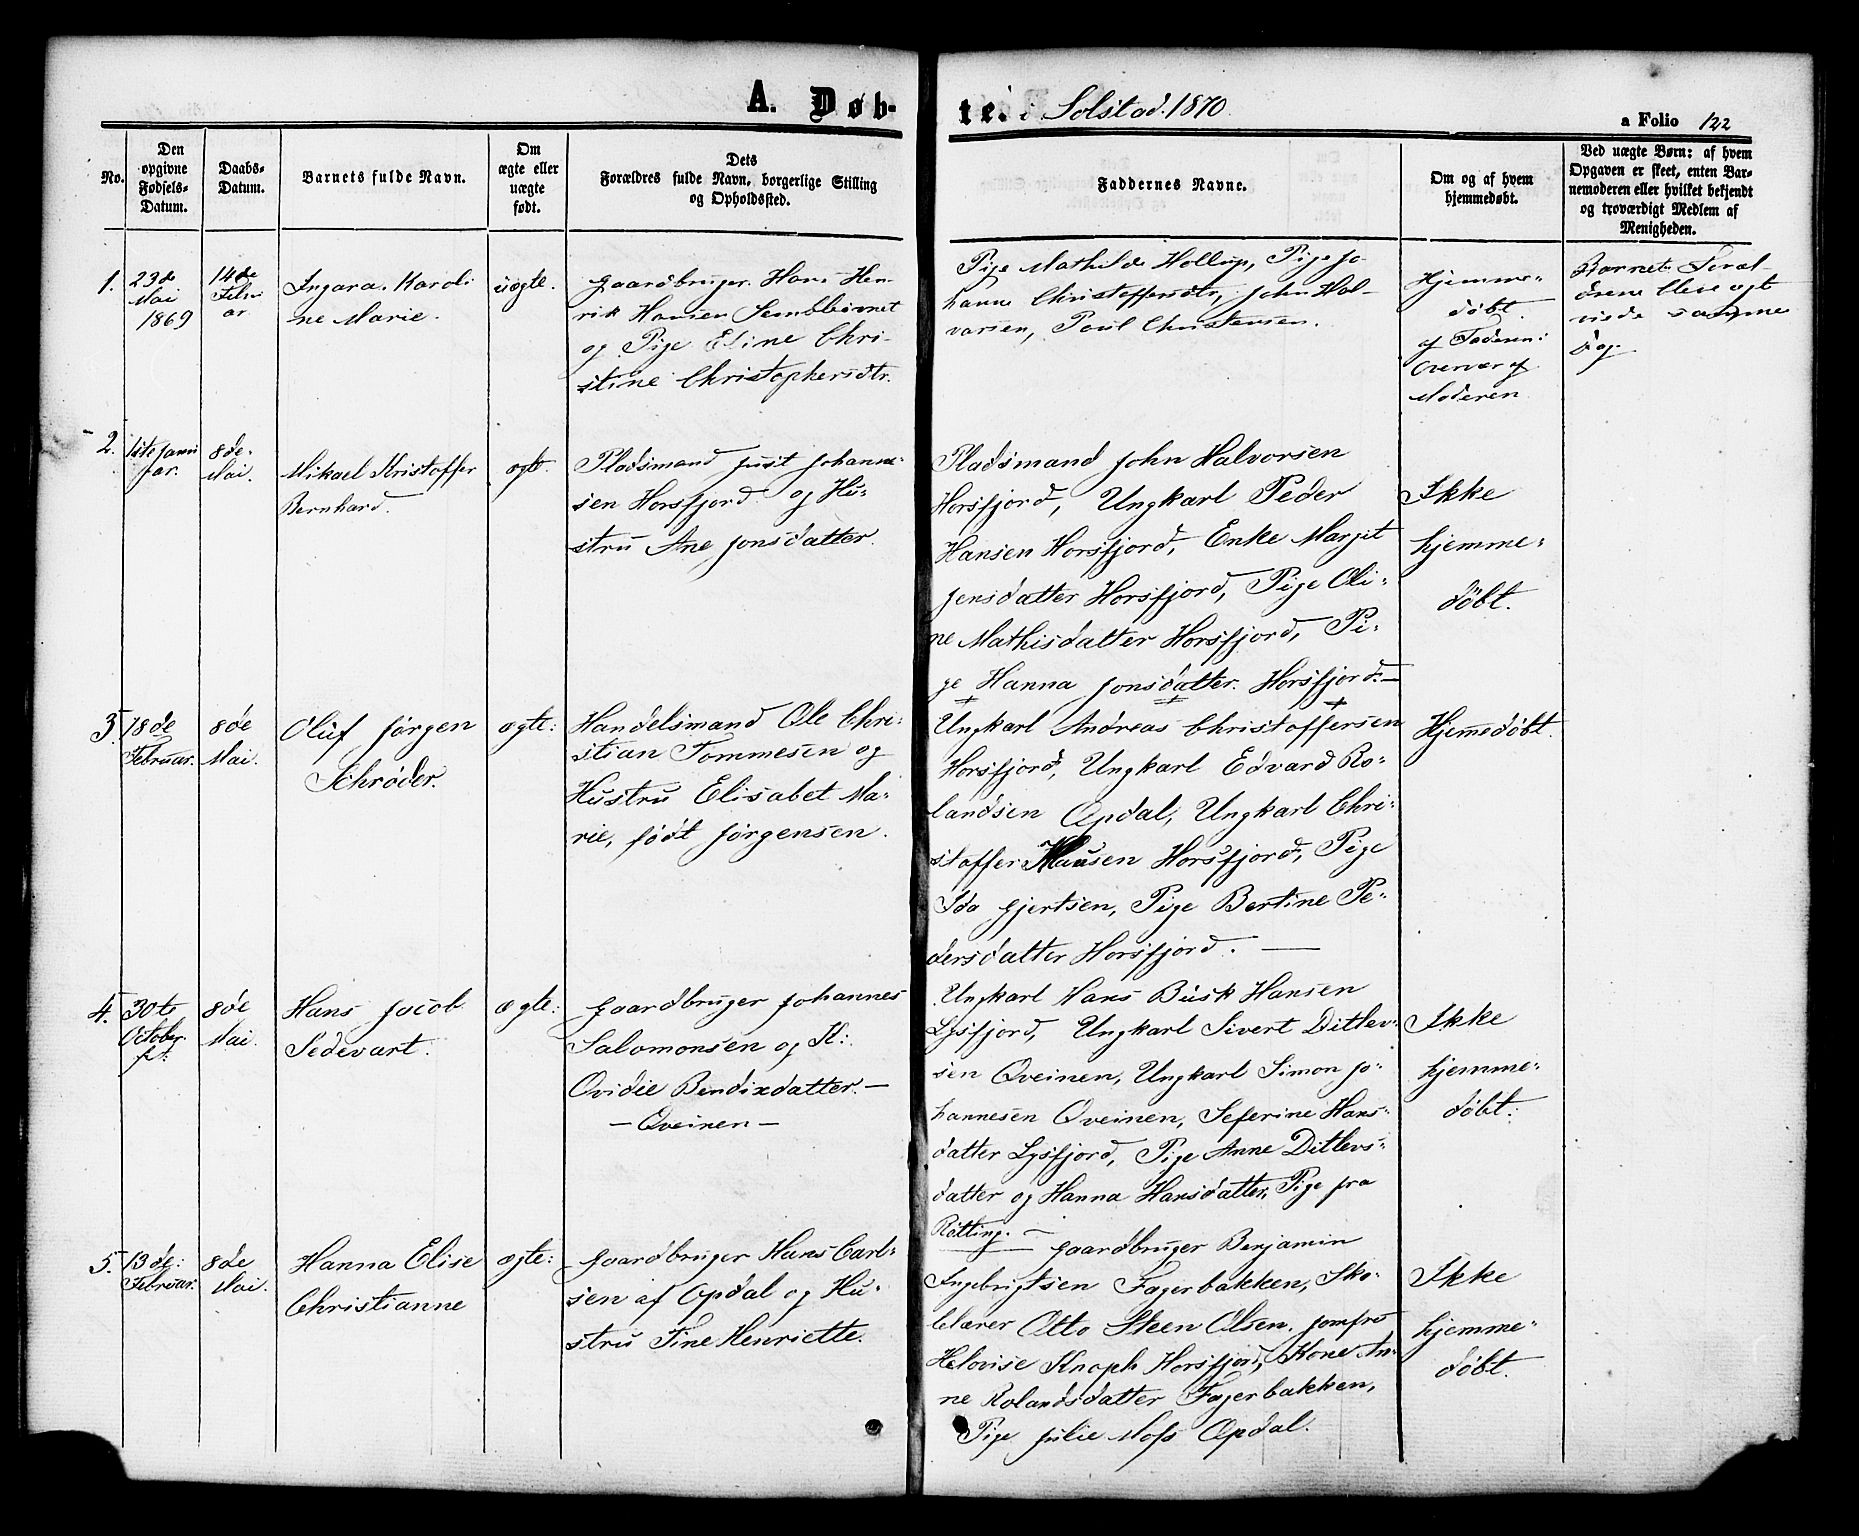 A. Døb-
te. i Solstad. 1870.
a Folio 122
No.
Den
opgivne
Fødsels-
Datum.
Daabs-
Datum.
Barnets fulde Navn.
Om
ægte eller
uægte
født.
Dets
Forældres fulde Navn, borgerlige Stilling
og Opholdssted.
Faddernes Navne.
Om og af hvem
hjemmedøbt.
Ved uægte Børn: af hvem
Opgaven er skeet, enten Bar-
nemoderen eller hvilket bekjendt
og troværdigt Medlem af
Menigheden.
1.
23de
Mai
1869
14de
Febru
ar
Ingara. Karoli
ne Marie.
uægte.
Gaardbruger. Hans Hen-
rik Hansen
og Pige Eline Chri-
stine Christophersdtr.
Pige Mathilde Hollup, Pige Jo
hanne Christoffersdtr, John Hal-
varsen, Paul Christensen.
Hjemme-
døbt.
af Faderen i
Overvær af
Moderen
Barnets Foræl-
drene bleve vjet
viede samme
Dag.
2.
1ste Janu
ar.
8de
Mai.
Mikael Kristoffer
Bernhard.
ægte.
Pladsmand Just Johanne-
sen Horsfjord og Hu-
stru Ane Jonsdatter.
Pladsmand John Halvorsen
Horsfjord, Ungkarl Peder
Hansen Horsfjord, Enke Margit
Jensdatter Horsfjord, Pige Oli-
ne Mathisdatter Horsfjord, Pi-
ge Hanna Jonsdatter. Horsfjord. —
Ikke
hjemme-
døbt.
3.
18de
Februar.
8de
Mai.
Oluf Jørgen
Schrøder.
ægte:
Handelsmand Ole Chri-
stian Tommesen og
Hustru Elisabet Ma-
rie, født Jørgensen.
Ungkarl Andreas Christoffersen
Horsfjord, Ungkarl Edvard Ro-
landsen Opdal, Ungkarl Chri-
stoffer Hansen Horsfjord, Pige
Ida Gjertsen, Pige Bertine Pe-
dersdatter Horsfjord. —
Hjemmedøbt.
4.
30te
October
f.
8de
Mai.
Hans Jacob
Sedevart.
ægte:
Gaardbruger Johannes
Salomonsen og H:
Ovidie Bendixdatter. —
— Qveinen —
Ungkarl Hans Busk Hansen
Lysfjord, Ungkarl Sivert Ditlev-
sen Qveinen, Ungkarl Simon Jo-
hannesen Qveinen, Seferine Hans-
datter Lysfjord, Pige Anne Ditlevs-
datter og Hanna Hansdatter, Pige fra
Røtting. —
Ikke
hjemme-
døbt:
5.
13de:
Februar.
8de
Mai.
Hanna Elise
Christianne
ægte:
Gaardbruger Hans Carl-
sen af Opdal og Hu-
stru Tine Henriette.
Gaardbruger Benjamin
Ingebrigtsen Fagerbakken, Sko-
lelærer Otto Steen Olsen, Jomfru
Helovise Knoph Horsfjord, Kone An-
ne Rolandsdatter Fagerbakken,
Pige Julie Moss Opdal.
Ikke
hjemme-
døbt.